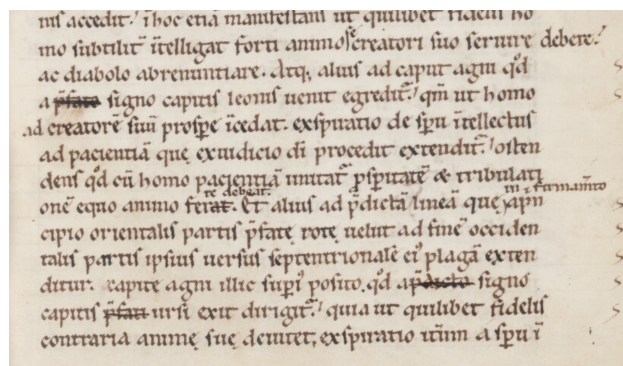 nis accedit. in hoc etiā manifestans ut quilibet fidelis ho
mo subtilit̄ ītelligat forti animo se creatori suo seruire debere.
ac diabolo abrenuntiare. Atq; alius ad caput agni qd̄
a p̄fato signo capitis leonis uenit egredit᷑. qm̄ ut homo
ad creatorē suū prospe īcedat. exspiratio de spū ītellectus
ad pacientiā quę ex iudicio dī procedit extendit᷑. osten
dens qd̄ cū homo pacientiā imitat᷑ psperitatē & tribulati
te debeat. in firmamto
onē equo animo ferat. Et alius ad p̄dictā lineā quę a pn
cipio orientalis partis p̄fatę rotę uelut ad finē occiden
talis partis ipsius uersus septentrionalē eiꝰ plagā exten
ditur. capite agni illic supi posito. qd̄ a p̄dicto signo
capitis p̄fati ursi exit dirigit᷑. quia ut quilibet fidelis
contraria animę suę deuitet, exspiratio itīm a spū ī